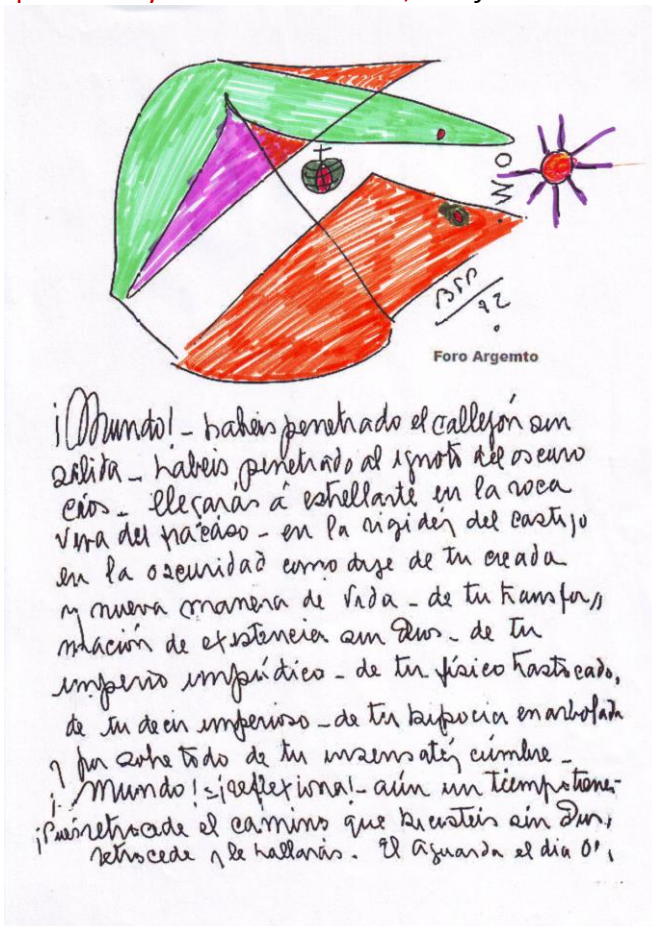 O
W.
BSP
72
Foro Argemto
¡Mundo! - habéis penetrado el callejón sin
salida - habéis penetrado al ignoto del oscuro
caos - llegarás á estrellarte en la roca
viva del fracaso - en la rigidez del castigo
en la oscuridad como dije de tu creada
y nueva manera de vida - de tu transfor,,
mación de existencia sin Dios - de tu
imperio impúdico - de tu físico trastocado,
de tu decir imperioso - de tu hipocresía enarbolada
y por sobre todo de tu insensatéz cúmbre -
¡Mundo! - ¡reflexiona! - aún un tiempo tienes -
¡Pues retrocede el camino que hicisteis sin Dios,
retrocede y le hallarás. El aguarda el dia 0',